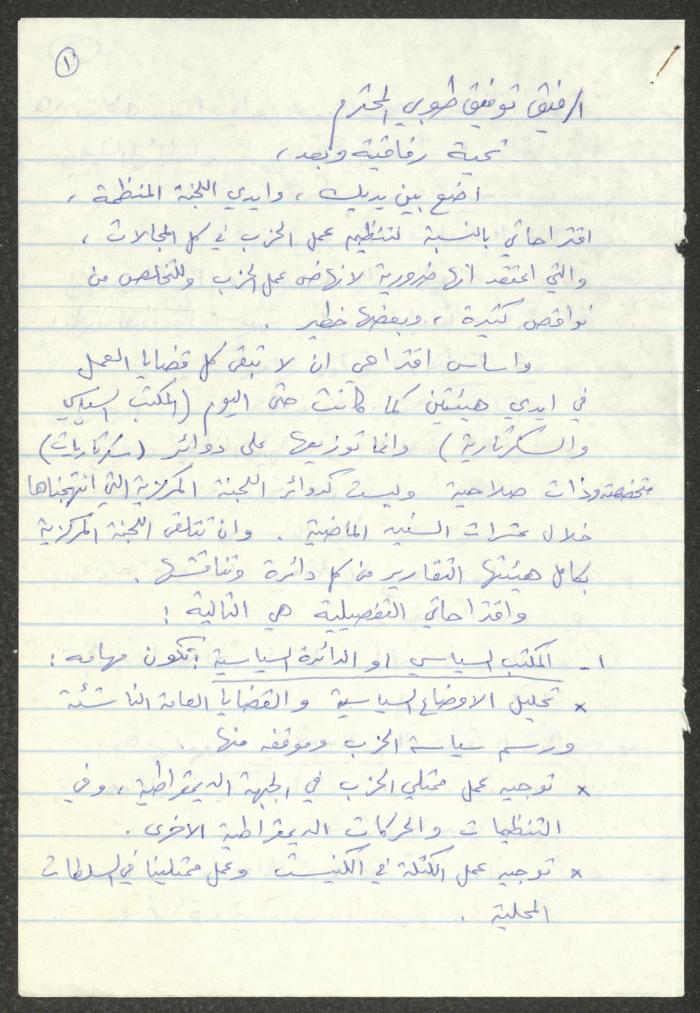 ١
الرفيق توفيق طوبي المحترم
تحية رفاقية وبعد،
اضع بين يديك، وايدي اللجنة المنظمة،
اقتراحاتي بالنسبة لتنظيم عمل الحزب في كل المجالات،
والتي اعتقد انها ضرورية لانهاض عمل الحزب وللتخلص من
نواقص كثيرة، وبعضها خطير.
واساس اقتراحي ان لا تبقى كل قضايا العمل
في ايدي هيئتين كما كانت حتى اليوم (المكتب السياسي
والسكرتارية) وانما توزيعها على دوائر (سكرتاريات)
متخصصة وذات صلاحية وليست كدوائر اللجنة المركزية التي انتهجناها
خلال عشرات السنين الماضية. وان تتلقى اللجنة المركزية
بكامل هيئتها التقارير من كل دائرة وتناقشها.
واقتراحاتي التفصيلية هي التالية:
١- المكتب السياسي او الدائرة السياسية: تكون مهامه:
* تحليل الاوضاع السياسية والقضايا العامة الناشئة
ورسم سياسة الحزب وموقفه منها.
* توجيه عمل ممثلي الحزب في الجبهة الديمقراطية، وفي
التنظيمات والحركات الديمقراطية الاخرى.
* توجيه عمل الكتلة في الكنيست وعمل ممثلينا في السلطات
المحلية.